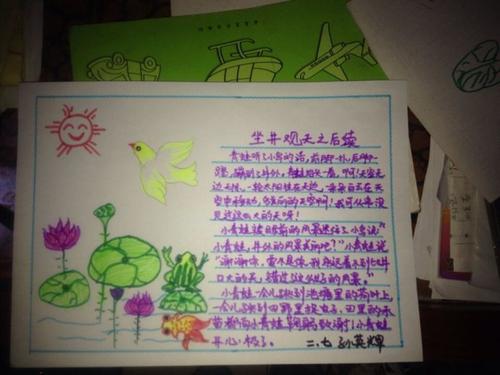 坐井观天之后续
青蛙听了小鸟的话，前脚一扑，后脚一
蹬，蹦到了井外。青蛙抬头一看，啊！天空无
边无际，一轮太阳挂在天边，朵朵白云在天
空中移动，多美的天空啊！我可从来没
见过这么大的天呀！
小青蛙被眼前的风景迷住了，小鸟说
小青蛙，井外的风景美丽吧？”小青蛙说
“谢谢你，要不是你，我只能看到
口大的天，错过这么好的风景。”
小青蛙一会儿跳到池塘里的荷叶上，
一会儿跳到田野里捉虫子，田里的禾
苗都向小青蛙鞠躬敬谢！小青蛙
开心极了。
二、七 孙英辉